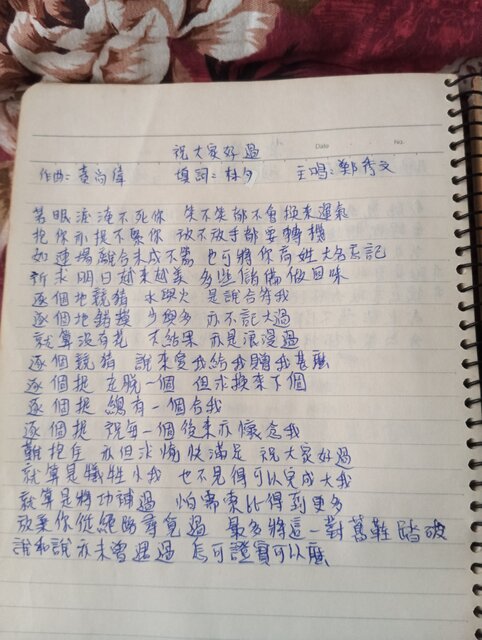 Date No.
祝大家好過
作曲:黃尚偉 填詞:林夕 主唱:鄭秀文
萬眼淚淹不死你 生不生都不會換來運氣
抱你亦捉不緊你 放不放手都要轉機
如連場離合未成不露 也可將你高姓大名忘記
祈求明日越來越美 多些儲備做回味
逐個地競猜 水與火 是誰合符我
逐個地錯摸 少與多 亦不記大過
就算沒有花 不結果 亦是浪漫過
逐個競猜 誰來愛我給我贈我甚麼
逐個捉 走脫一個 但求換來下個
逐個捉 總有一個合我
逐個捉 祝每一個後來亦懷念我
難抱存 亦但求愉快滿足 祝大家好過
就算是犧牲小我 也不見得可以完成大我
就算是將功補過 怕棄東比得到更多
放棄你從絕路尋覓過 最多將這一對舊鞋踏破
誰和誰亦未曾遇過 怎可證實可以麼